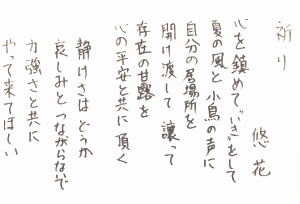 祈り
悠花
心を鎮めて いきをして
夏の風と小鳥の声に
自分の居場所を
開け渡して 譲って
存在の甘露を
心の平安と共に頂く
静けさはどうか
哀しみとつながらないで
力強さと共に
やって来てほしい